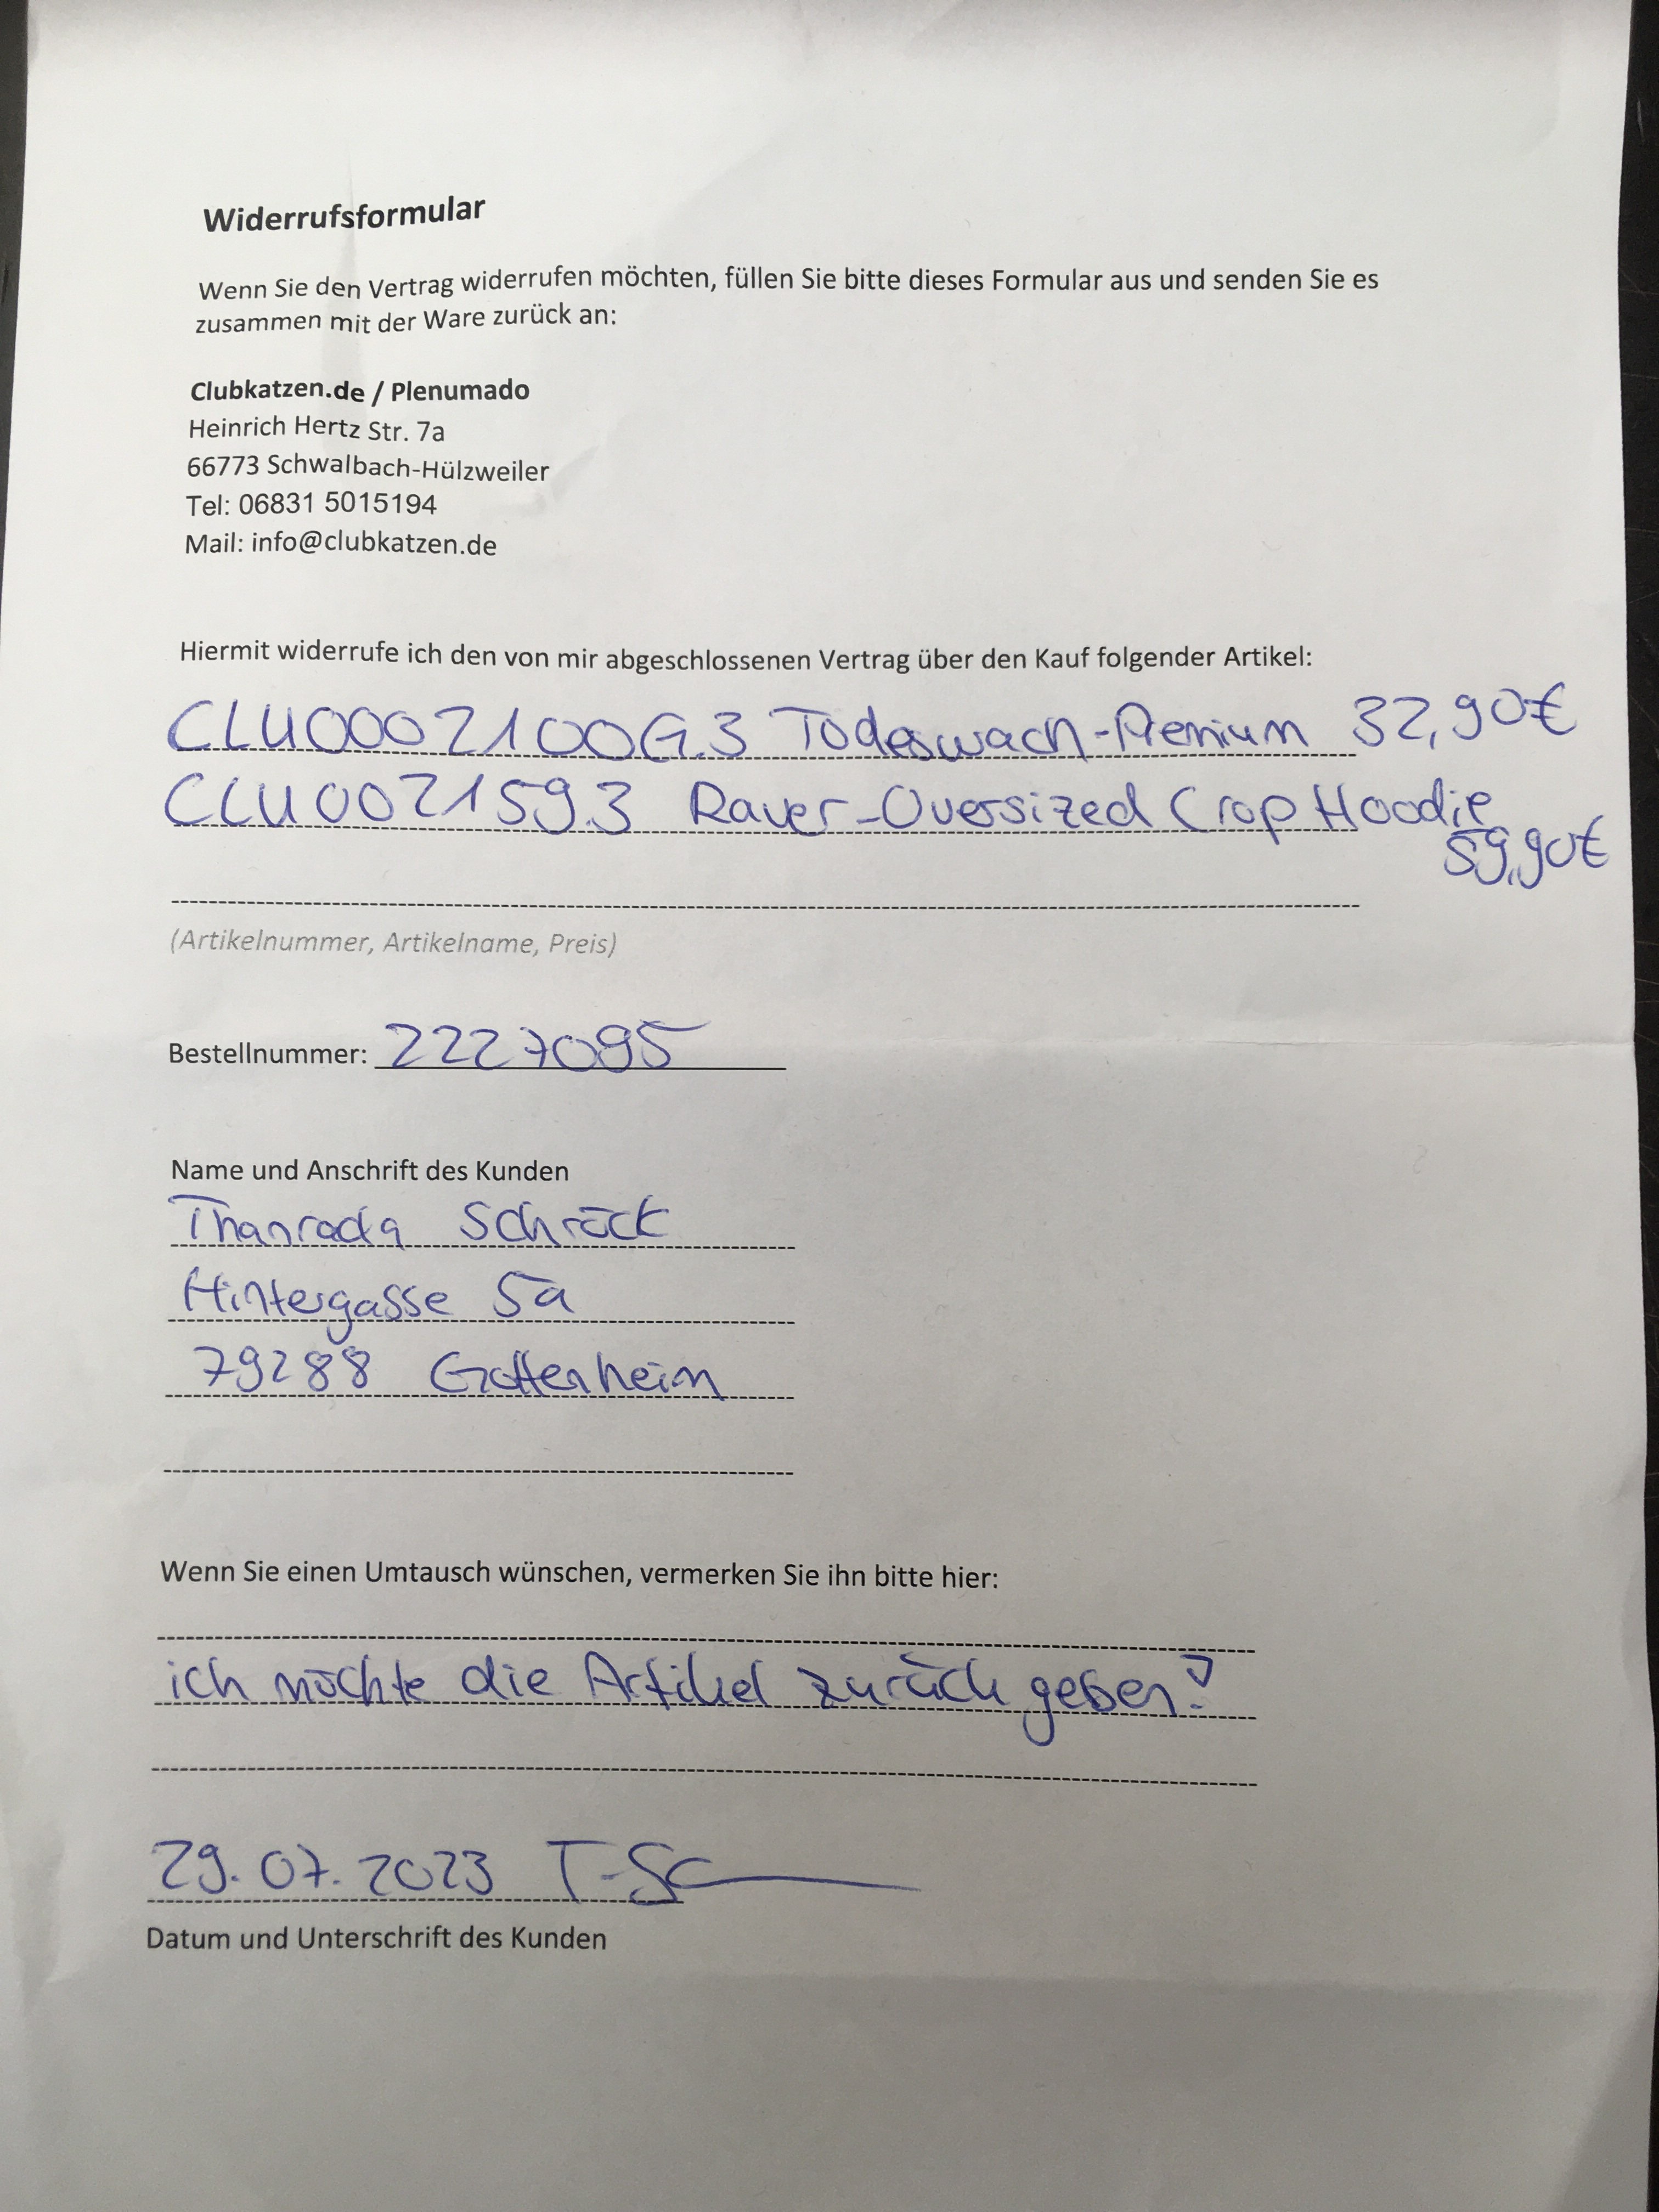 Widerrufsformular
Wenn Sie den Vertrag widerrufen möchten, füllen Sie bitte dieses Formular aus und senden Sie es
zusammen mit der Ware zurück an:
Clubkatzen.de / Plenumado
Heinrich Hertz Str. 7a
66773 Schwalbach-Hülzweiler
Tel: 06831 5015194
Mail: info@clubkatzen.de
Hiermit widerrufe ich den von mir abgeschlossenen Vertrag über den Kauf folgender Artikel:
CLU0002100G.3 Todeswach-Premium 32,90€
CLU002159.3 Raver-Oversized Crop Hoodie
59,90€
(Artikelnummer, Artikelname, Preis)
Bestellnummer: 2227095
Name und Anschrift des Kunden
Thanrada Schröck
Hintergasse 5a
79288 Gottenheim
Wenn Sie einen Umtausch wünschen, vermerken Sie ihn bitte hier:
ich möchte die Artikel zurück geben!
29.07.2023 T-Sc
Datum und Unterschrift des Kunden